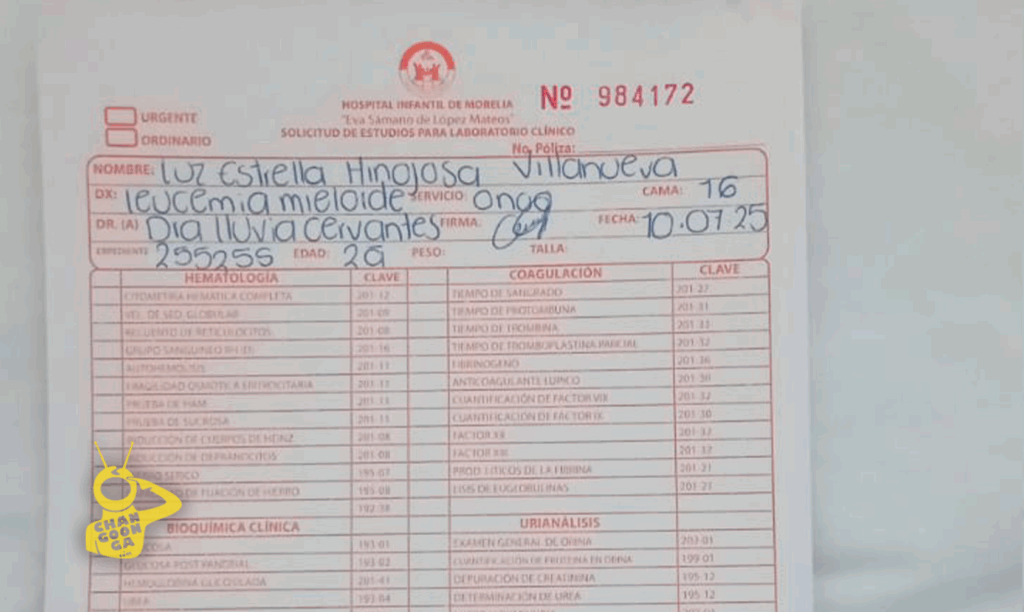 Nº 984172
HOSPITAL INFANTIL DE MORELIA
"Eva Sámano de López Mateos"
SOLICITUD DE ESTUDIOS PARA LABORATORIO CLÍNICO
URGENTE
ORDINARIO
No. Póliza:
NOMBRE: Luz Estrella Hinojosa Villanueva
DX: leucemia mieloide SERVICIO: Onco CAMA: 16
DR. (A) Dra lluvia cervantes FIRMA: FECHA: 10.07.25
EXPEDIENTE 255255 EDAD: 2a PESO: TALLA:
HEMATOLOGÍA CLAVE COAGULACIÓN CLAVE
CITOMETRIA HEMATICA COMPLETA 201-12 TIEMPO DE SANGRADO 201-27
VEL. DE SED. GLOBULAR 201-09 TIEMPO DE PROTOMBINA 201-31
RECUENTO DE RETICULOCITOS 201-08 TIEMPO DE TROMBINA 201-33
GRUPO SANGUINEO RH (D) 201-16 TIEMPO DE TROMBOPLASTINA PARCIAL 201-32
AUTOHEMOLISIS 201-11 FIBRINOGENO 201-36
FRAGILIDAD OSMOTICA ERITROCITARIA 201-11 ANTICOAGULANTE LUPICO 201-30
PRUEBA DE HAM 201-11 CUANTIFICACIÓN DE FACTOR VIII 201-32
PRUEBA DE SUCROSA 201-11 CUANTIFICACIÓN DE FACTOR IX 201-30
INDUCCIÓN DE CUERPOS DE HEINZ 201-08 FACTOR XII 201-32
INDUCCIÓN DE DEPRANOCITOS 201-08 FACTOR XIII 201-32
SERICO 195-07 PROD. LITICOS DE LA FIBRINA 201-21
DE FIJACIÓN DE HIERRO 195-08 LISIS DE EUGLOBULINAS 201-21
192-38
BIOQUÍMICA CLÍNICA URIANÁLISIS
193-01 EXAMEN GENERAL DE ORINA 203-01
GLUCOSA POST PANDRIAL 193-02 CUANTIFICACIÓN DE PROTEINA EN ORINA 199-01
HEMOGLOBINA GLICOSILADA 201-41 DEPURACIÓN DE CREATININA 195-12
UREA 193-04 DETERMINACIÓN DE UREA 195-12
CHAN
GOON
GA